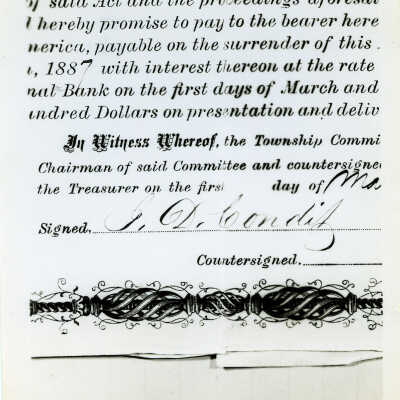 of said Act and the proceedings aforesai
d hereby promise to pay to the bearer here
merica, payable on the surrender of this
, 1887 with interest thereon at the rate
nal Bank on the first days of March and
undred Dollars on presentation and deliv
In Witness Whereof, the Township Commi
Chairman of said Committee and countersigne
the Treasurer on the first day of Ma
Signed, J. D. Condit
Countersigned.